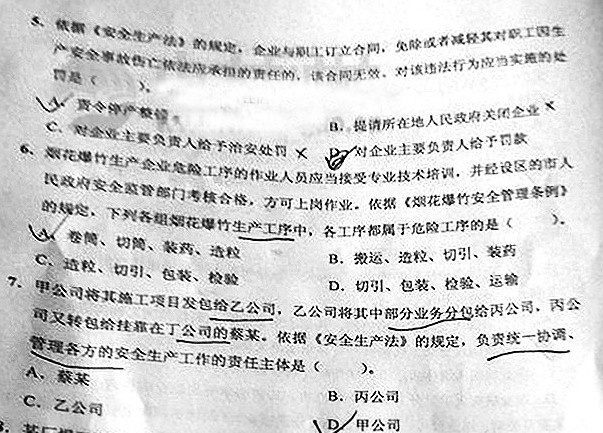 5. 依据《安全生产法》的规定，企业与职工订立合同，免除或者减轻其对职工因生
产安全事故伤亡依法应承担的责任的，该合同无效。对该违法行为应当实施的处
罚是（ ）。
A. 责令停产整顿
B. 提请所在地人民政府关闭企业
C. 对企业主要负责人给予治安处罚
D. 对企业主要负责人给予罚款
6. 烟花爆竹生产企业危险工序的作业人员应当接受专业技术培训，并经设区的市人
民政府安全监管部门考核合格，方可上岗作业。依据《烟花爆竹安全管理条例》
的规定，下列各组烟花爆竹生产工序中，各工序都属于危险工序的是（ ）。
A. 卷筒、切筒、装药、造粒
B. 搬运、造粒、切引、装药
C. 造粒、切引、包装、检验
D. 切引、包装、检验、运输
7. 甲公司将其施工项目发包给乙公司，乙公司将其中部分业务分包给丙公司，丙公
司又转包给挂靠在丁公司的蔡某。依据《安全生产法》的规定，负责统一协调、
管理各方的安全生产工作的责任主体是（ ）。
A. 蔡某
B. 丙公司
C. 乙公司
D. 甲公司